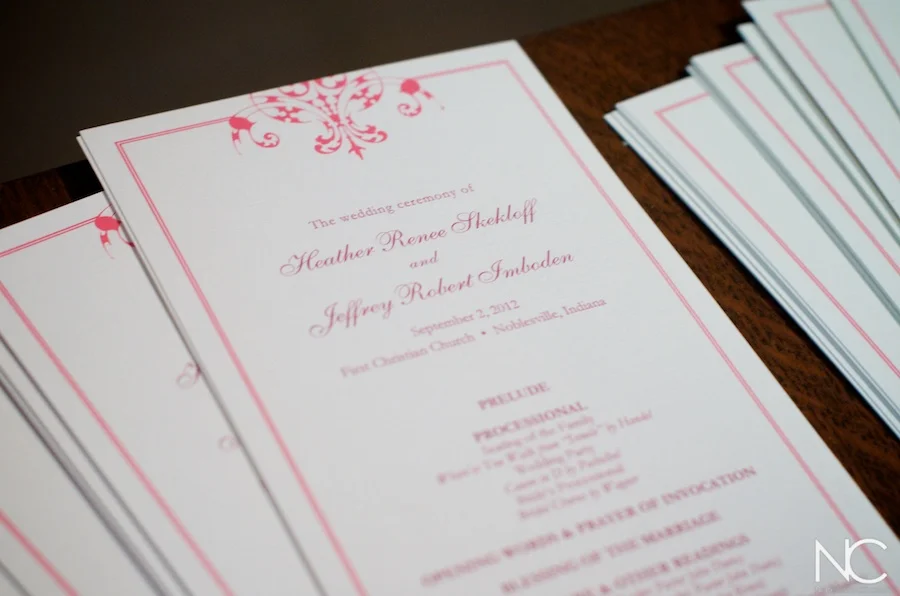 The wedding ceremony of
Heather Renee Skekloff
and
Jeffrey Robert Imboden
September 2, 2012
First Christian Church • Noblesville, Indiana
PRELUDE
PROCESSIONAL
Seating of the Family
Where'er You Walk from "Semele" by Handel
Wedding Party
Canon in D by Pachelbel
Bride's Processional
Bridal Chorus by Wagner
OPENING WORDS & PRAYER OF INVOCATION
BLESSING OF THE MARRIAGE
& OTHER READINGS
NC